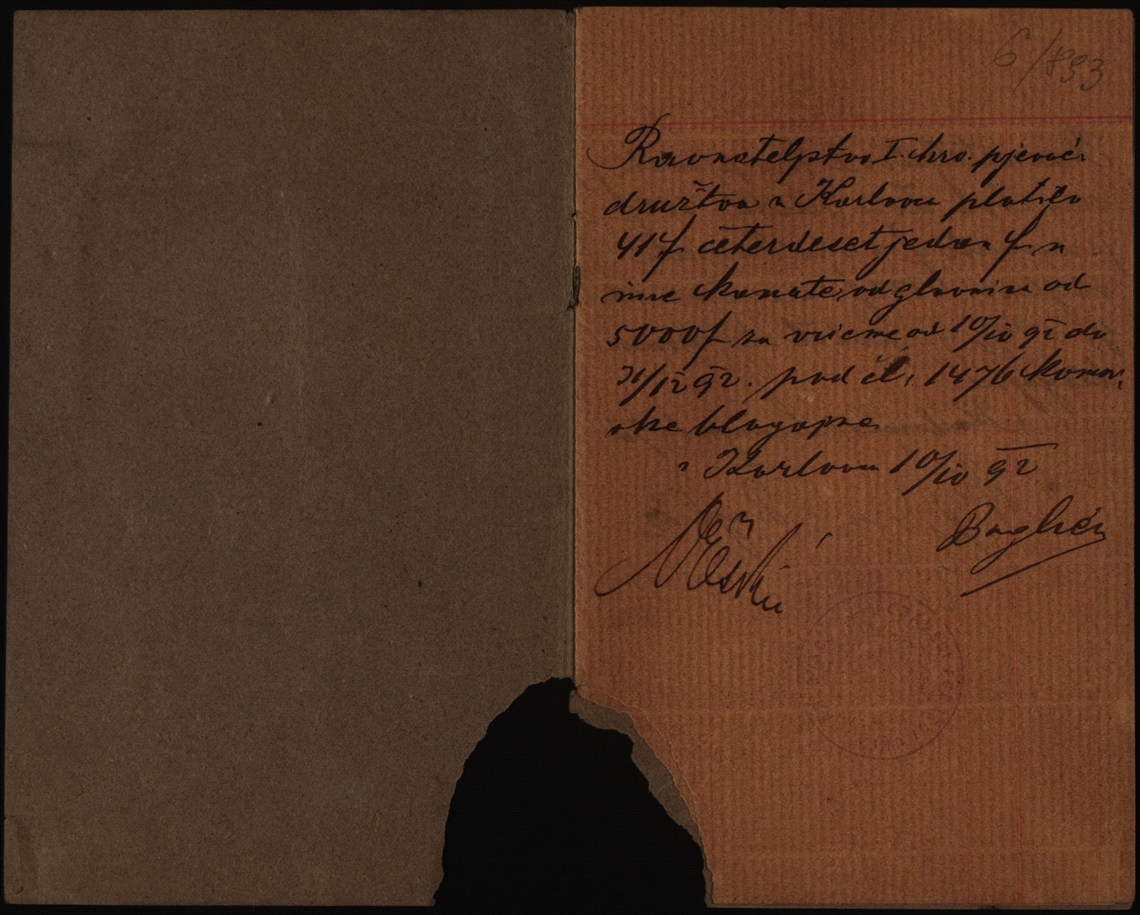 6/893
Ravnateljstvo I. hrv. pjevač.
družtva u Karlovcu platilo
41f četerdesetjedan f u
ime kamate, od glavnice od
5000f za vrieme od 10/10 92 do
31/12 92. pod čl. 1476 komor.
ske blagajne
u Karlovcu 10/10 92